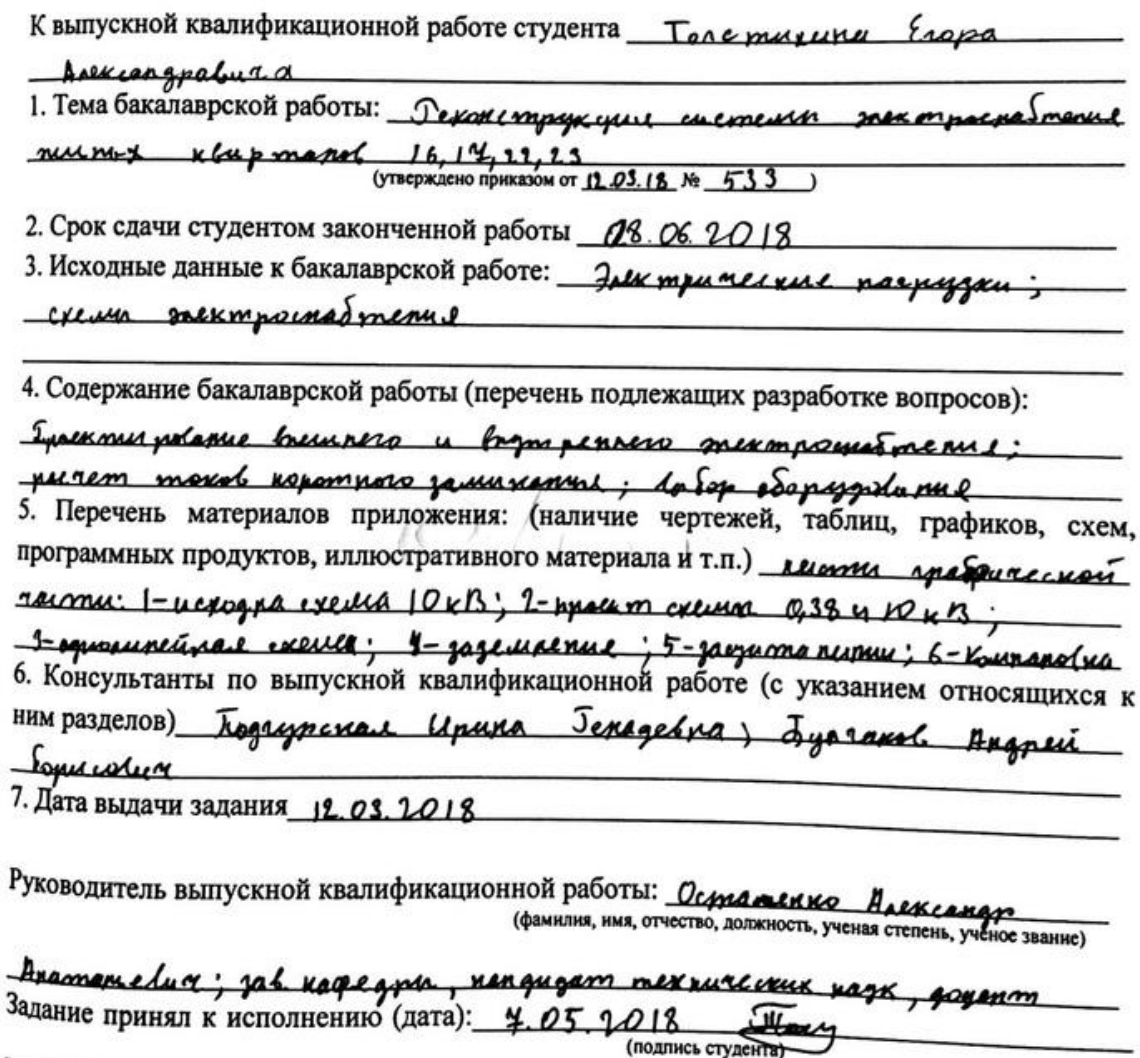 К выпускной квалификационной работе студента Толстихина Егора
Александровича
1. Тема бакалаврской работы: Реконструкция системы электроснабжения
жилых кварталов 16, 17, 22, 23
(утверждено приказом от 12.03.18 № 533 )
2. Срок сдачи студентом законченной работы 08.06.2018
3. Исходные данные к бакалаврской работе: Электрические нагрузки;
схемы электроснабжения
4. Содержание бакалаврской работы (перечень подлежащих разработке вопросов):
Проектирование внешнего и внутреннего электроснабжения;
расчет токов короткого замыкания; выбор оборудования
5. Перечень материалов приложения: (наличие чертежей, таблиц, графиков, схем,
программных продуктов, иллюстративного материала и т.п.) листы графической
части: 1-исходна схема 10 кВ; 2-проект схемы 0,38 и 10 кВ;
3-однолинейная схема; 4-заземление; 5-защита линии; 6-Компановка
6. Консультанты по выпускной квалификационной работе (с указанием относящихся к
ним разделов) Подгурская Ирина Генадевна, Булгаков Андрей
Борисович
7. Дата выдачи задания 12.03.2018
Руководитель выпускной квалификационной работы: Остапенко Александр
(фамилия, имя, отчество, должность, ученая степень, учёное звание)
зав. кафедры, кандидат технических наук, доцент
Задание принял к исполнению (дата): 7.05.2018
(подпись студента)